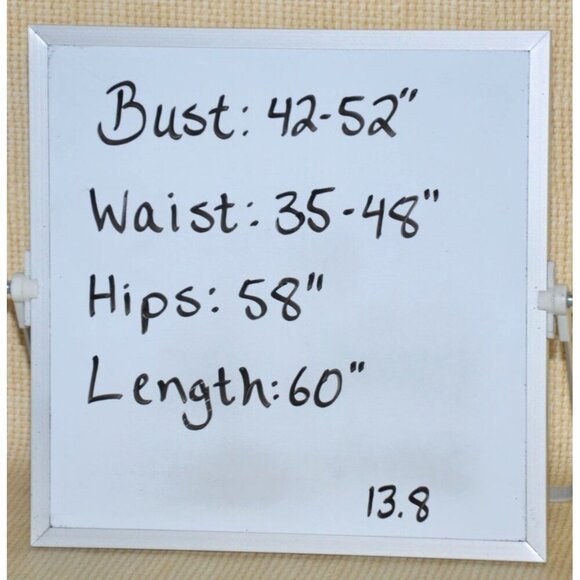 Bust: 42-52"
Waist: 35-48"
Hips: 58"
Length: 60"
13.8